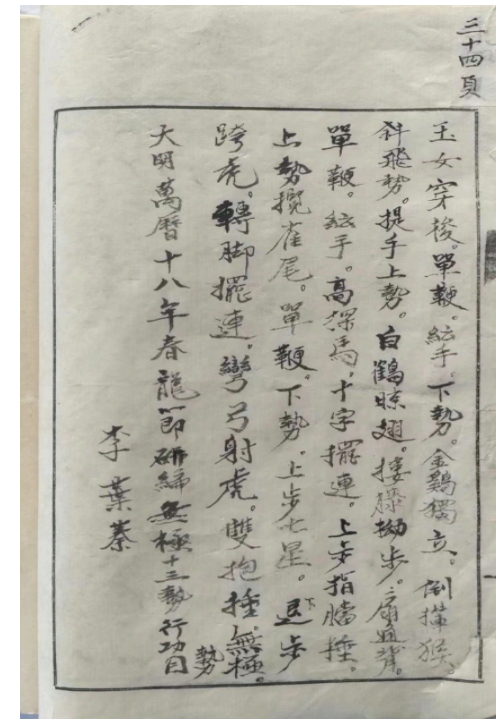 三十四頁
玉女穿後。單鞭。紜手。下勢。金鷄獨立。倒攆猴。
斜飛勢。提手上勢。白鶴晾翅。摟膝拗步。扇通背。
單鞭。紜手。高探馬。十字擺連。上步指膅捶。
上勢攬雀尾。單鞭。下勢。上步七星。下退步
跨虎。轉脚擺連。彎弓射虎。雙抱捶。無極勢。
大明萬曆十八年春龍節研締無極十三勢行功目
李葉蓁